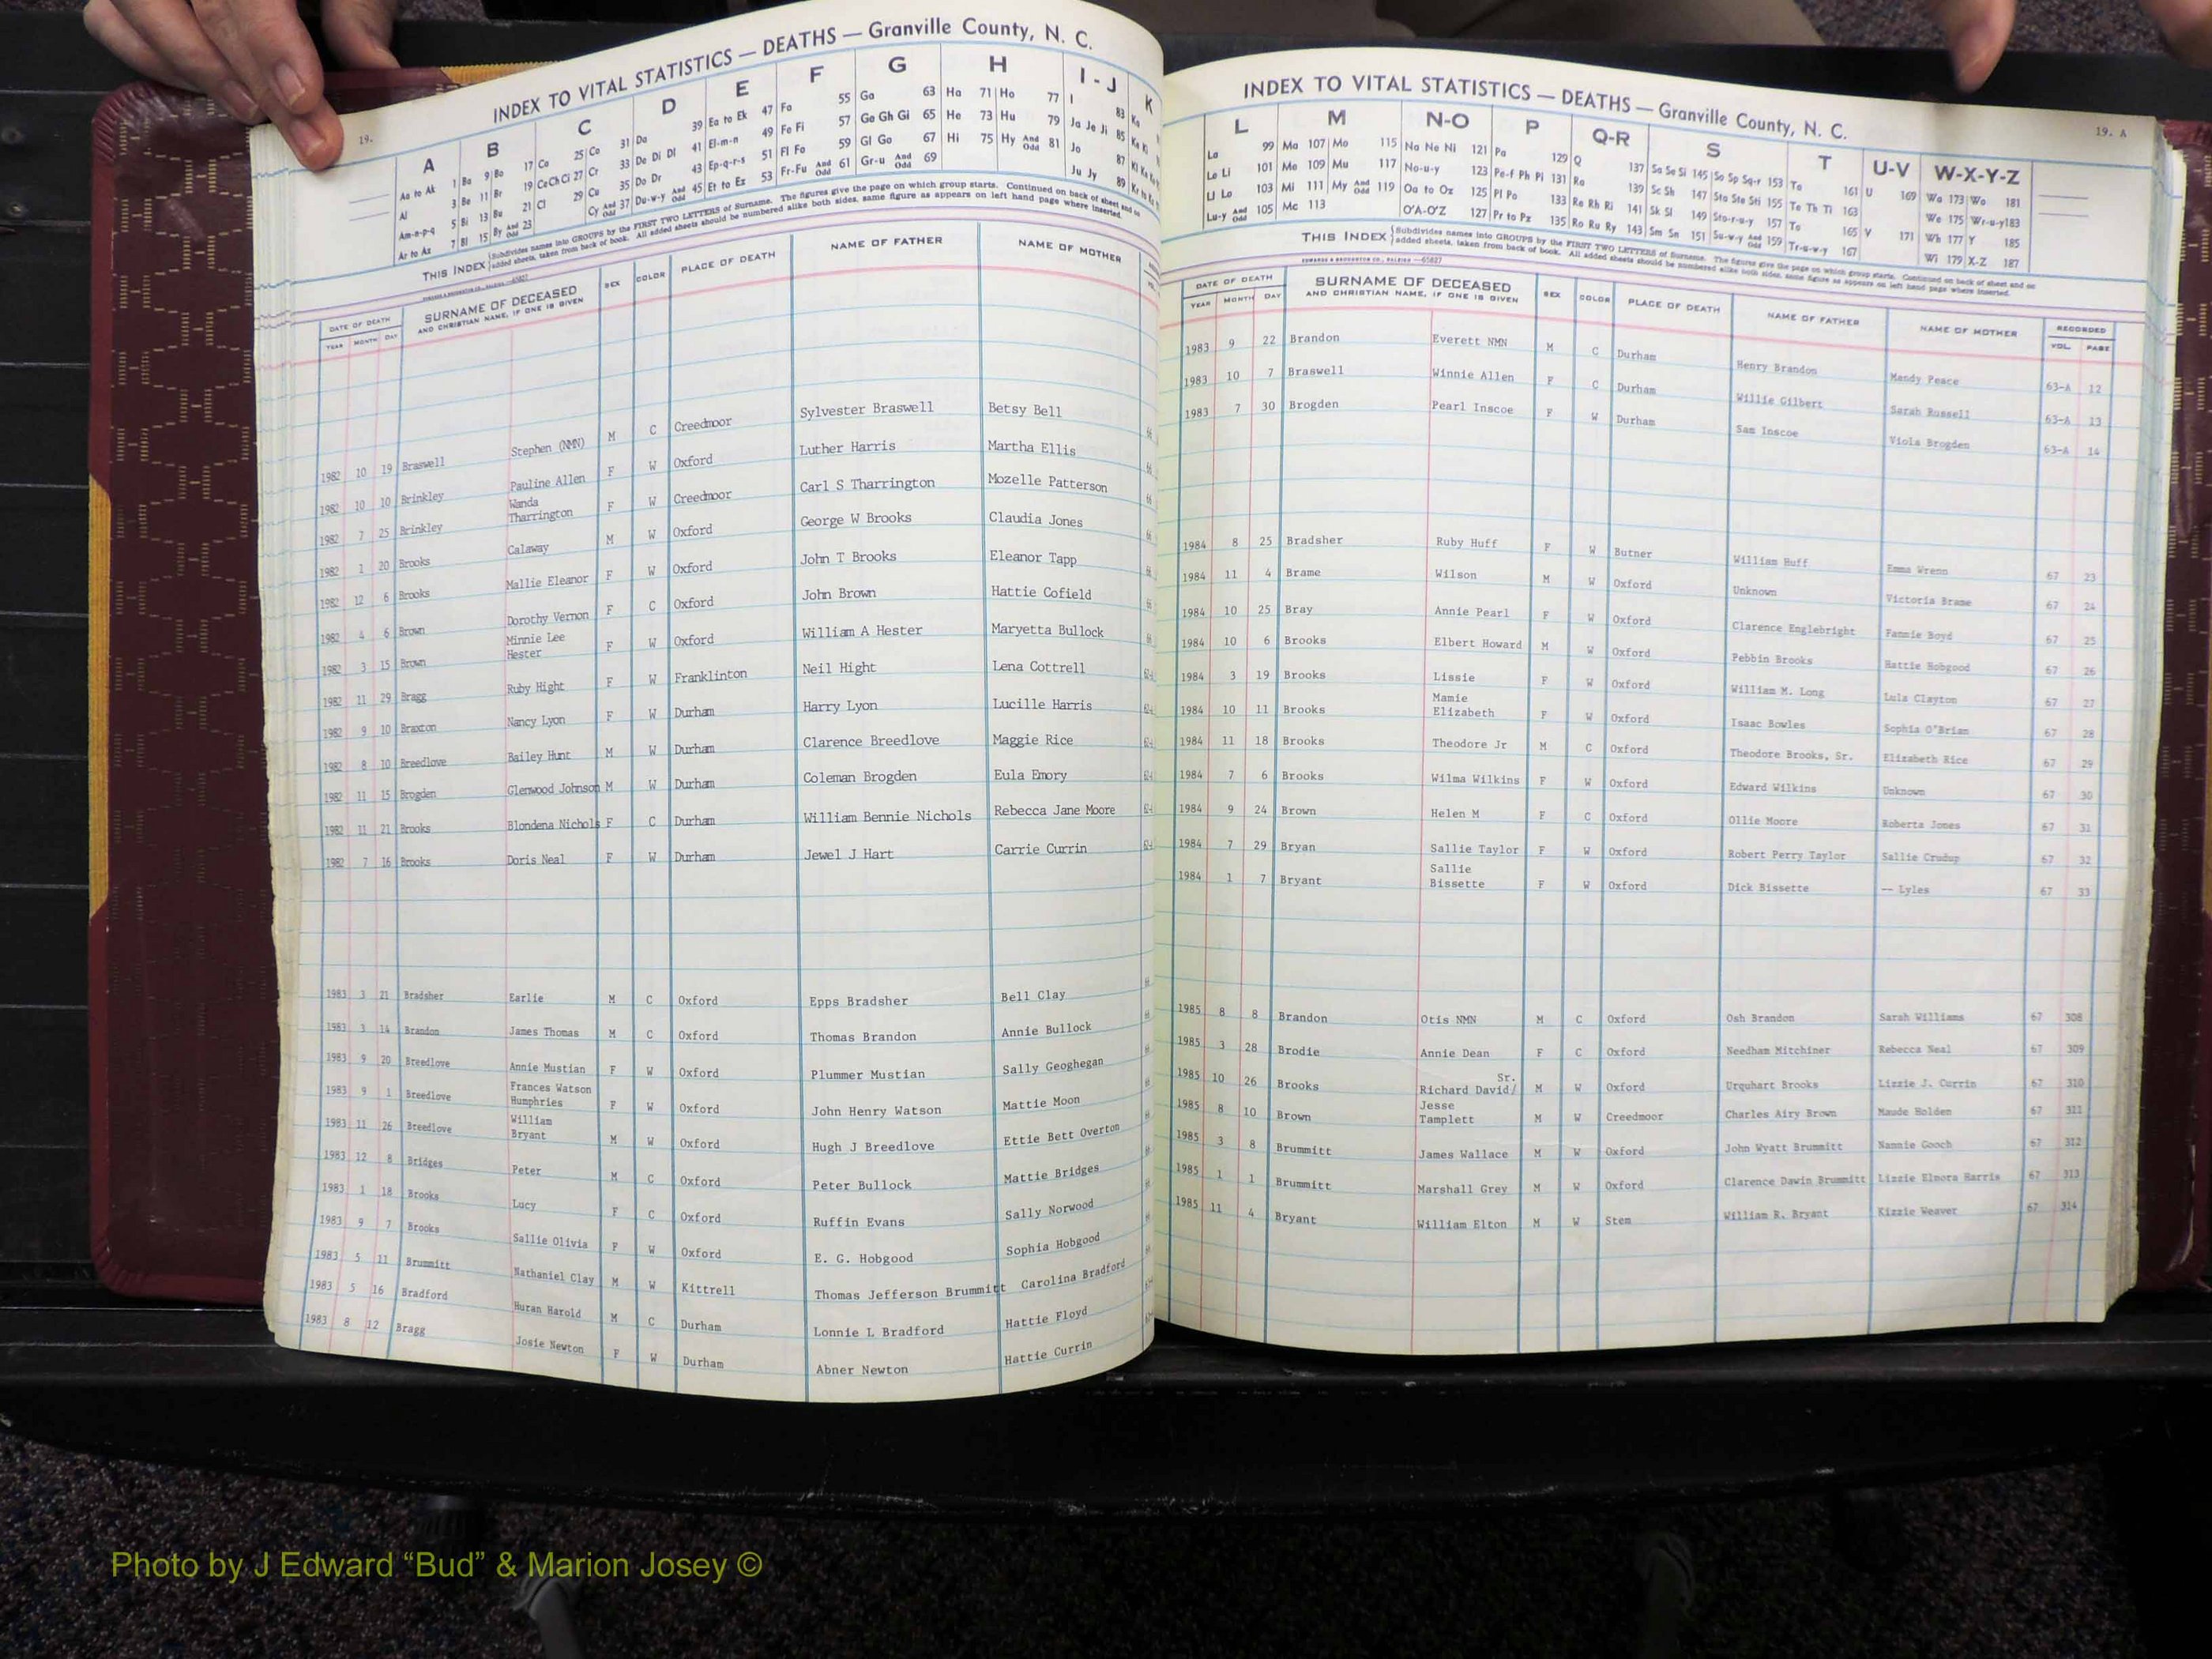 19.
INDEX TO VITAL STATISTICS — DEATHS — Granville County, N. C.
A B C D E F G H I - J K
Aa to Ak 1 Ba 9 Bo 17 Ca 25 Co 31 Da 39 Ea to Ek 47 Fa 55 Ga 63 Ha 71 Ho 77 I 83 Ka
Al 3 Be 11 Br 19 Ce Ch Ci 27 Cr 33 De Di Dl 41 El-m-n 49 Fe Fi 57 Ge Gh Gi 65 He 73 Hu 79 Ja Je Ji 85
Am-n-p-q 5 Bi 13 Bu 21 Cl 29 Cu 35 Do Dr 43 Ep-q-r-s 51 Fl Fo 59 Gl Go 67 Hi 75 Hy And Odd 81 Jo 87
Ar to Az 7 Bl 15 By And Odd 23 Cy And Odd 37 Du-w-y And Odd 45 Et to Ez 53 Fr-Fu And Odd 61 Gr-u And Odd 69 Ju Jy 89
THIS INDEX Subdivides names into GROUPS by the FIRST TWO LETTERS of Surname. The figures give the page on which group starts. Continued on back of sheet and on
added sheets, taken from back of book. All added sheets should be numbered alike both sides, same figure as appears on left hand page where inserted.
DATE OF DEATH SURNAME OF DECEASED SEX COLOR PLACE OF DEATH NAME OF FATHER NAME OF MOTHER
YEAR MONTH DAY AND CHRISTIAN NAME, IF ONE IS GIVEN
1982 10 19 Braswell Stephen (NMN) M C Creedmoor Sylvester Braswell Betsy Bell
1982 10 10 Brinkley Pauline Allen F W Oxford Luther Harris Martha Ellis
1982 7 25 Brinkley Wanda Tharrington F W Creedmoor Carl S Tharrington Mozelle Patterson
1982 1 20 Brooks Calaway M W Oxford George W Brooks Claudia Jones
1982 12 6 Brooks Mallie Eleanor F W Oxford John T Brooks Eleanor Tapp
1982 4 6 Brown Dorothy Vernon F C Oxford John Brown Hattie Cofield
1982 3 15 Brown Minnie Lee Hester F W Oxford William A Hester Maryetta Bullock
1982 11 29 Bragg Ruby Hight F W Franklinton Neil Hight Lena Cottrell
1982 9 10 Braxton Nancy Lyon F W Durham Harry Lyon Lucille Harris
1982 8 10 Breedlove Bailey Hunt M W Durham Clarence Breedlove Maggie Rice
1982 11 15 Brogden Glenwood Johnson M W Durham Coleman Brogden Eula Emory
1982 11 21 Brooks Blondena Nichols F C Durham William Bennie Nichols Rebecca Jane Moore
1982 7 16 Brooks Doris Neal F W Durham Jewel J Hart Carrie Currin
1983 3 21 Bradsher Earlie M C Oxford Epps Bradsher Bell Clay
1983 3 14 Brandon James Thomas M C Oxford Thomas Brandon Annie Bullock
1983 9 20 Breedlove Annie Mustian F W Oxford Plummer Mustian Sally Geoghegan
1983 9 1 Breedlove Frances Watson Humphries F W Oxford John Henry Watson Mattie Moon
1983 11 26 Breedlove William Bryant M W Oxford Hugh J Breedlove Ettie Bett Overton
1983 12 8 Bridges Peter M C Oxford Peter Bullock Mattie Bridges
1983 1 18 Brooks Lucy F C Oxford Ruffin Evans Sally Norwood
1983 9 7 Brooks Sallie Olivia F W Oxford E. G. Hobgood Sophia Hobgood
1983 5 11 Brummitt Nathaniel Clay M W Kittrell Thomas Jefferson Brummitt Carolina Bradford
1983 5 16 Bradford Huran Harold M C Durham Lonnie L Bradford Hattie Floyd
1983 8 12 Bragg Josie Newton F W Durham Abner Newton Hattie Currin
19. A
INDEX TO VITAL STATISTICS — DEATHS — Granville County, N. C.
L M N-O P Q-R S T U-V W-X-Y-Z
La 99 Ma 107 Mo 115 Na Ne Ni 121 Pa 129 Q 137 Sa Se Si 145 So Sp Sq-r 153 Ta 161 U 169 Wa 173 Wo 181
Le Li 101 Me 109 Mu 117 No-u-y 123 Pe-f Ph Pi 131 Ra 139 Sc Sh 147 Sta Ste Sti 155 Te Th Ti 163 We 175 Wr-u-y 183
Ll Lo 103 Mi 111 My And Odd 119 Oa to Oz 125 Pl Po 133 Re Rh Ri 141 Sk Sl 149 Sto-r-u-y 157 To 165 V 171 Wh 177 Y 185
Lu-y And Odd 105 Mc 113 O'A-O'Z 127 Pr to Pz 135 Ro Ru Ry 143 Sm Sn 151 Su-w-y And Odd 159 Tr-u-w-y 167 Wi 179 X-Z 187
THIS INDEX Subdivides names into GROUPS by the FIRST TWO LETTERS of Surname. The figures give the page on which group starts. Continued on back of sheet and on
added sheets, taken from back of book. All added sheets should be numbered alike both sides, same figure as appears on left hand page where inserted.
EDWARDS & BROUGHTON CO., RALEIGH—65827
DATE OF DEATH SURNAME OF DECEASED SEX COLOR PLACE OF DEATH NAME OF FATHER NAME OF MOTHER RECORDED
YEAR MONTH DAY AND CHRISTIAN NAME, IF ONE IS GIVEN VOL. PAGE
1983 9 22 Brandon Everett NMN M C Durham Henry Brandon Mandy Peace 63-A 12
1983 10 7 Braswell Winnie Allen F C Durham Willie Gilbert Sarah Russell 63-A 13
1983 7 30 Brogden Pearl Inscoe F W Durham Sam Inscoe Viola Brogden 63-A 14
1984 8 25 Bradsher Ruby Huff F W Butner William Huff Emma Wrenn 67 23
1984 11 4 Brame Wilson M W Oxford Unknown Victoria Brame 67 24
1984 10 25 Bray Annie Pearl F W Oxford Clarence Englebright Fannie Boyd 67 25
1984 10 6 Brooks Elbert Howard M W Oxford Pebbin Brooks Hattie Hobgood 67 26
1984 3 19 Brooks Lissie F W Oxford William M. Long Lula Clayton 67 27
1984 10 11 Brooks Mamie Elizabeth F W Oxford Isaac Bowles Sophia O'Brian 67 28
1984 11 18 Brooks Theodore Jr M C Oxford Theodore Brooks, Sr. Elizabeth Rice 67 29
1984 7 6 Brooks Wilma Wilkins F W Oxford Edward Wilkins Unknown 67 30
1984 9 24 Brown Helen M F C Oxford Ollie Moore Roberta Jones 67 31
1984 7 29 Bryan Sallie Taylor F W Oxford Robert Perry Taylor Sallie Crudup 67 32
1984 1 7 Bryant Sallie Bissette F W Oxford Dick Bissette -- Lyles 67 33
1985 8 8 Brandon Otis NMN M C Oxford Osh Brandon Sarah Williams 67 308
1985 3 28 Brodie Annie Dean F C Oxford Needham Mitchiner Rebecca Neal 67 309
1985 10 26 Brooks Richard David/ Sr. M W Oxford Urquhart Brooks Lizzie J. Currin 67 310
1985 8 10 Brown Jesse Tamplett M W Creedmoor Charles Airy Brown Maude Holden 67 311
1985 3 8 Brummitt James Wallace M W Oxford John Wyatt Brummitt Nannie Gooch 67 312
1985 1 1 Brummitt Marshall Grey M W Oxford Clarence Dawin Brummitt Lizzie Elnora Harris 67 313
1985 11 4 Bryant William Elton M W Stem William R. Bryant Kizzie Weaver 67 314
Photo by J Edward “Bud” & Marion Josey ©